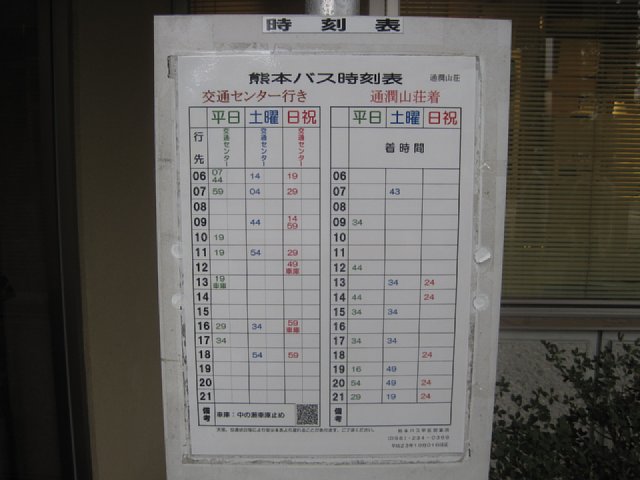 時刻表
熊本バス時刻表 通潤山荘
交通センター行き
平日 土曜 日祝
行先 交通センター 交通センター 交通センター
06 07 44 14 19
07 59 04 29
08
09 44 14 59
10 19
11 19 54 29
12 49車庫
13 19車庫
14
15
16 29 34 59車庫
17 34
18 54 59
19
20
21
備考 車庫：中の瀬車庫止め
通潤山荘着
平日 土曜 日祝
着時間
06
07 43
08
09 34
10
11
12 44
13 34 24
14 44 24
15 34 34
16
17 34 34
18 24
19 16 49
20 54 49 24
21 29 19 24
備考